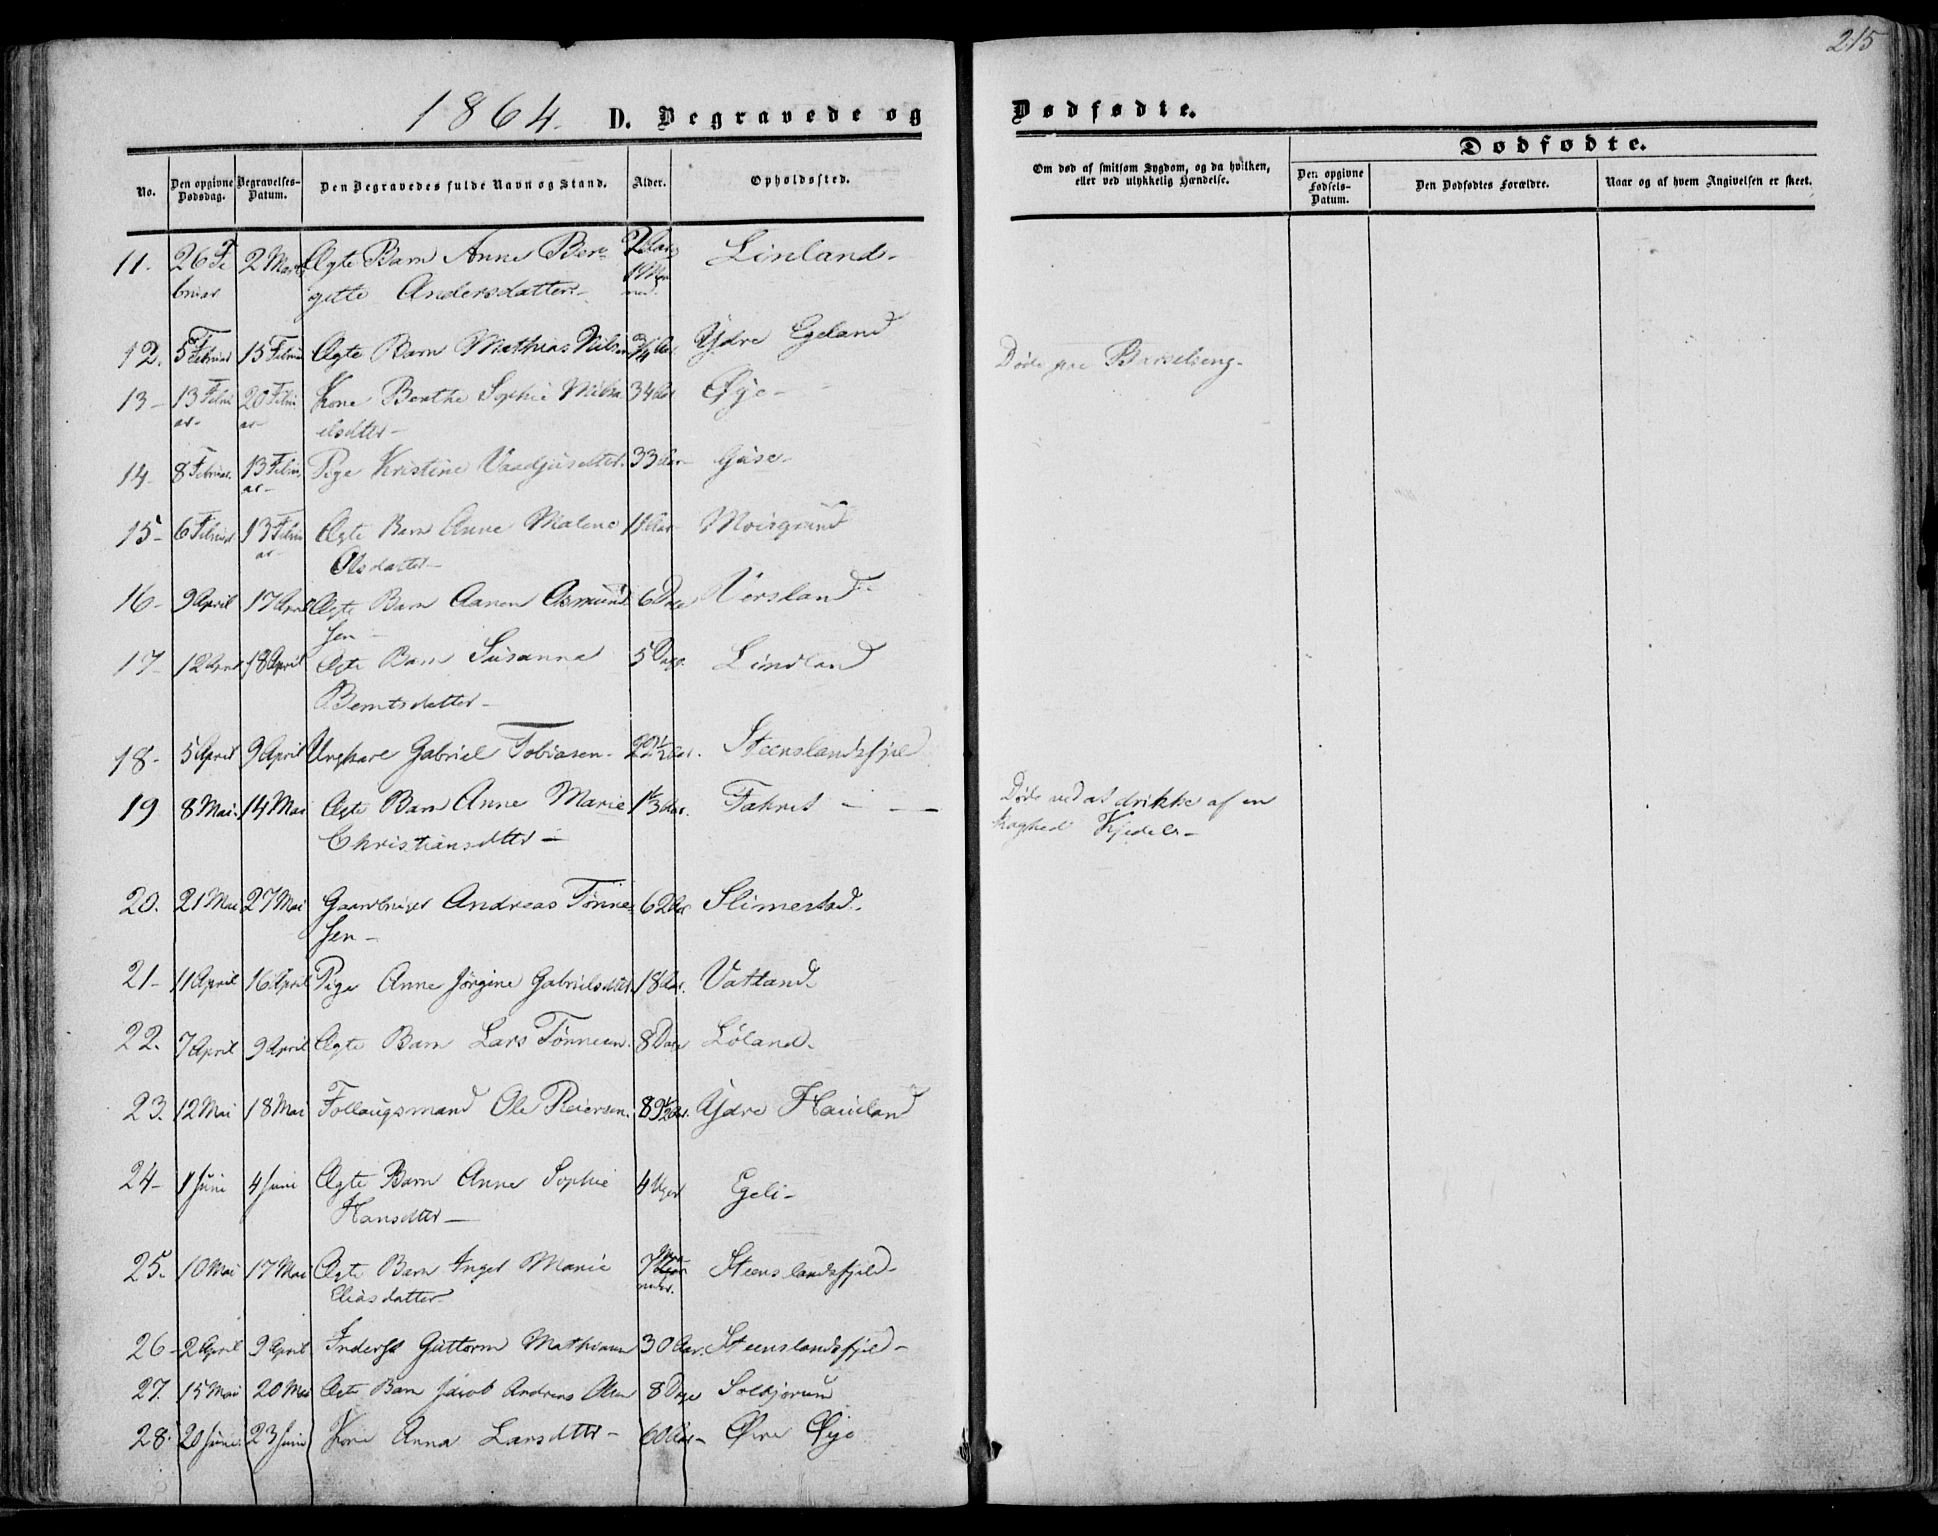 1864. D. Begravede og
Dødfødte.
215
No.
Den opgivne Dødsdag.
Begravelses-Datum.
Den Begravedes fulde Navn og Stand.
Alder.
Opholdssted.
Om død af smitsom Sygdom, og da hvilken, eller ved ulykkelig Hændelse.
Dødfødte.
Den opgivne Fødsels-Datum.
Den Dødfødtes Forældre.
Naar og af hvem Angivelsen er skeet.
11. 26 Fe 2 Marts Ægte Barn Anne Ber= 2 Aar Linland-
bruar gitte Andersdatter- 1 Maa
ned.
12. 5 Februar 15 Februar Ægte Barn Mathias Nilsen 3/4 Aar Ydre Egeland
Døde paa Barselseng-
13- 13 Febru 20 Febru Kone Berthe Sophie 34 Aar Øye-
ar- ar- elsdtter-
14- 8 Februar. 13 Febru Pige Kristine 33 Aar- Gause-
ar-
15- 6 Februar 13 Febru Ægte Barn Anne Malene 11 Aar Moisgrund
ar- Olsdatter-
16- 9 April 17 April Ægte Barn Aanen Asmund 6 Dage Versland-
sen-
17- 12 April 18 April Ægte Barn Susanna 5 Dage. Lindland
Berntsdatter-
18- 5 April 9 April Ungkare Gabriel Tobiasen- 22 1/2 Aar. Steenslandsfjeld
19 8 Mai. 14 Mai Ægte Barn Anne Marie 1 1/3 Aar. Fakret -
Døde ved at drikke af en
Christiansdtter-
koghed Kjedel-
20. 21 Mai 27 Mai Gaardbruger Andreas Tønne= 62 Aar Slimestad-
sen-
21- 11 April 16 April Pige Anne Jørgine Gabrielsdtter. 18 Aar. Vatland-
22. 7 April 9 April Ægte Barn Lars Tønnesen. 8 Dage Løland-
23. 12 Mai 18 Mai Follaugsmand Ole Reiersen. 89 1/2 Aar. Ydre Haueland
24- 1 Juni 4 Juni Ægte Barn Anne Sophie 4 Uger Egeli-
Hansdtter-
25. 10 Mai 17 Mai Ægte Barn Inger Marie 7 Maa Steenslandsfjeld-
Eliasdatter- neder.
26- 2 April 9 April Inderst Guttorm Mathiasen 30 Aar. Steenslandsfjeld-
27. 15 Mai 20 Mai Ægte Barn Jacob Andreas Olsen 8 Dage Solhjorum
28. 20 Juni. 23 Juni Kone Anna Larsdtter- 60 Aar- Øvre Øye